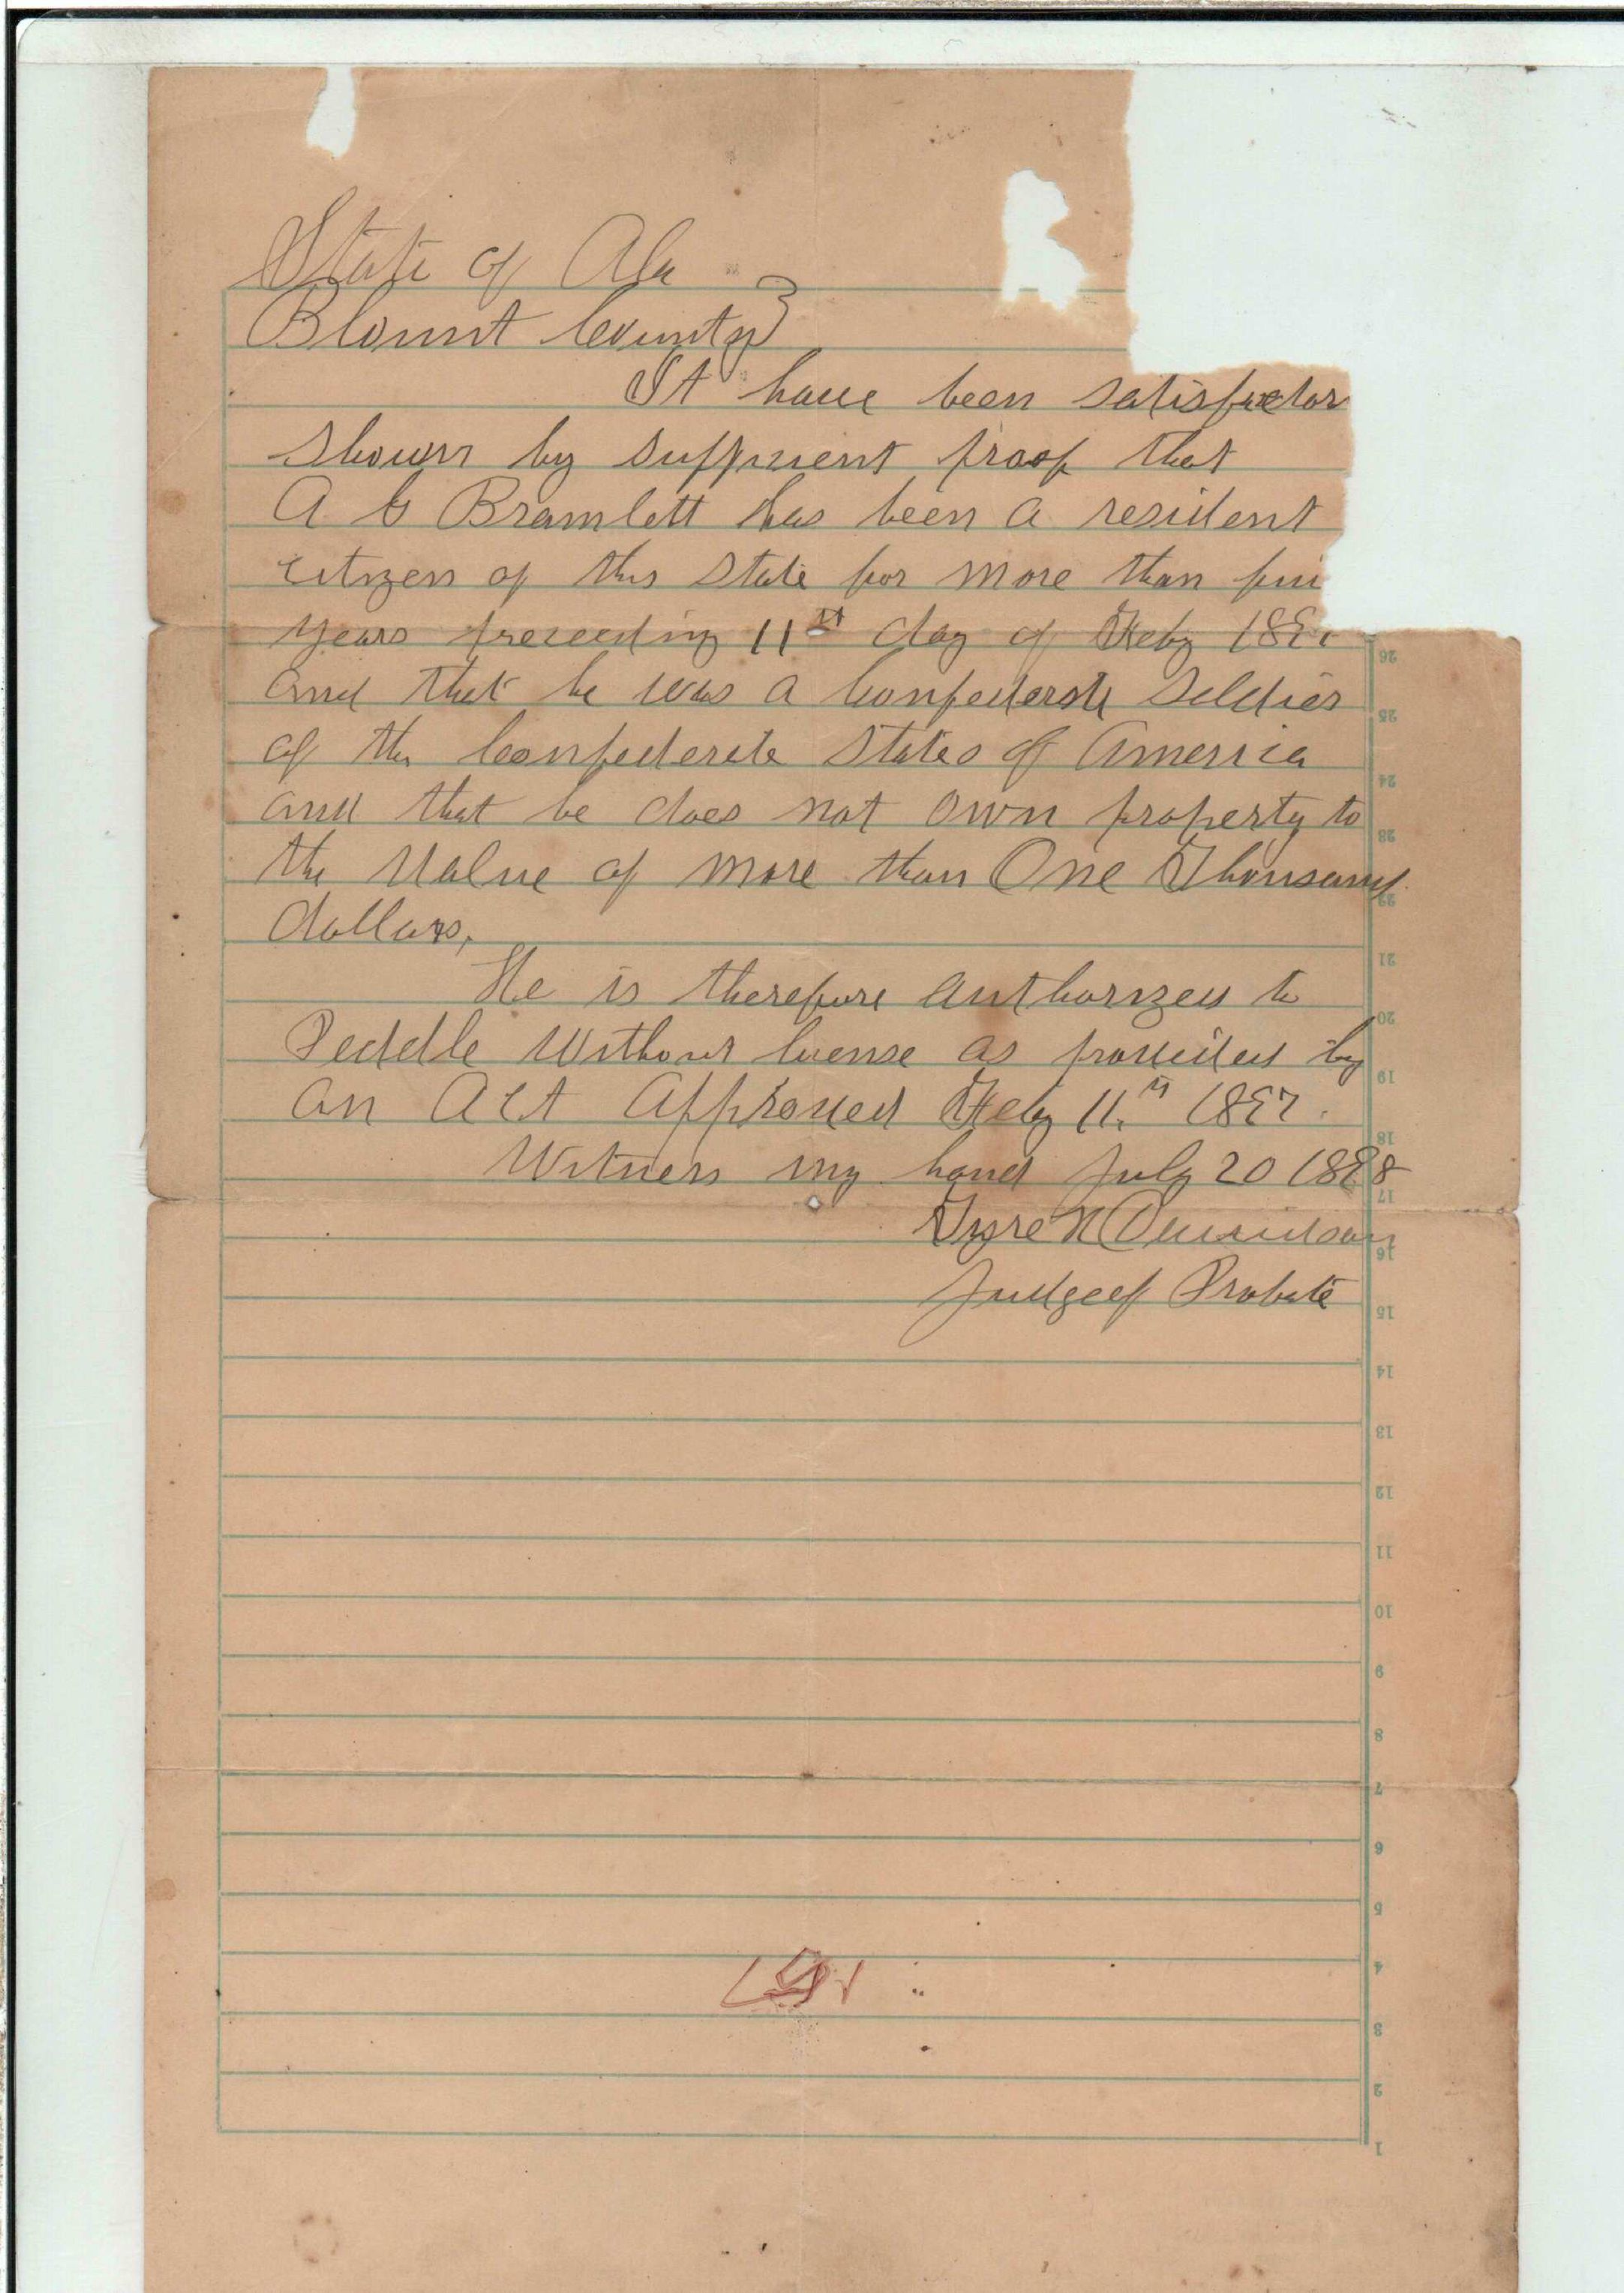 State of Ala
Blount County
It have been satisfactor
shown by suffinient proof that
A G Bramlett has been a resident
citizen of this State for more than fiv
years preceeding 11st day of Feby 189
and that he was a Confederate Soldier
of the Confederate States of America
and that he does not own property to
the Value of more than One Thousand
dollars,
He is therefore authorized to
Peddle Without license as provided by
an Act Approved Feby 11.th 1897.
Witness my hand July 20 1898
Tyre H Davidson
Judge of Probate
26
25
24
23
22
21
20
19
18
17
16
15
14
13
12
11
10
9
8
7
6
5
4
3
2
1